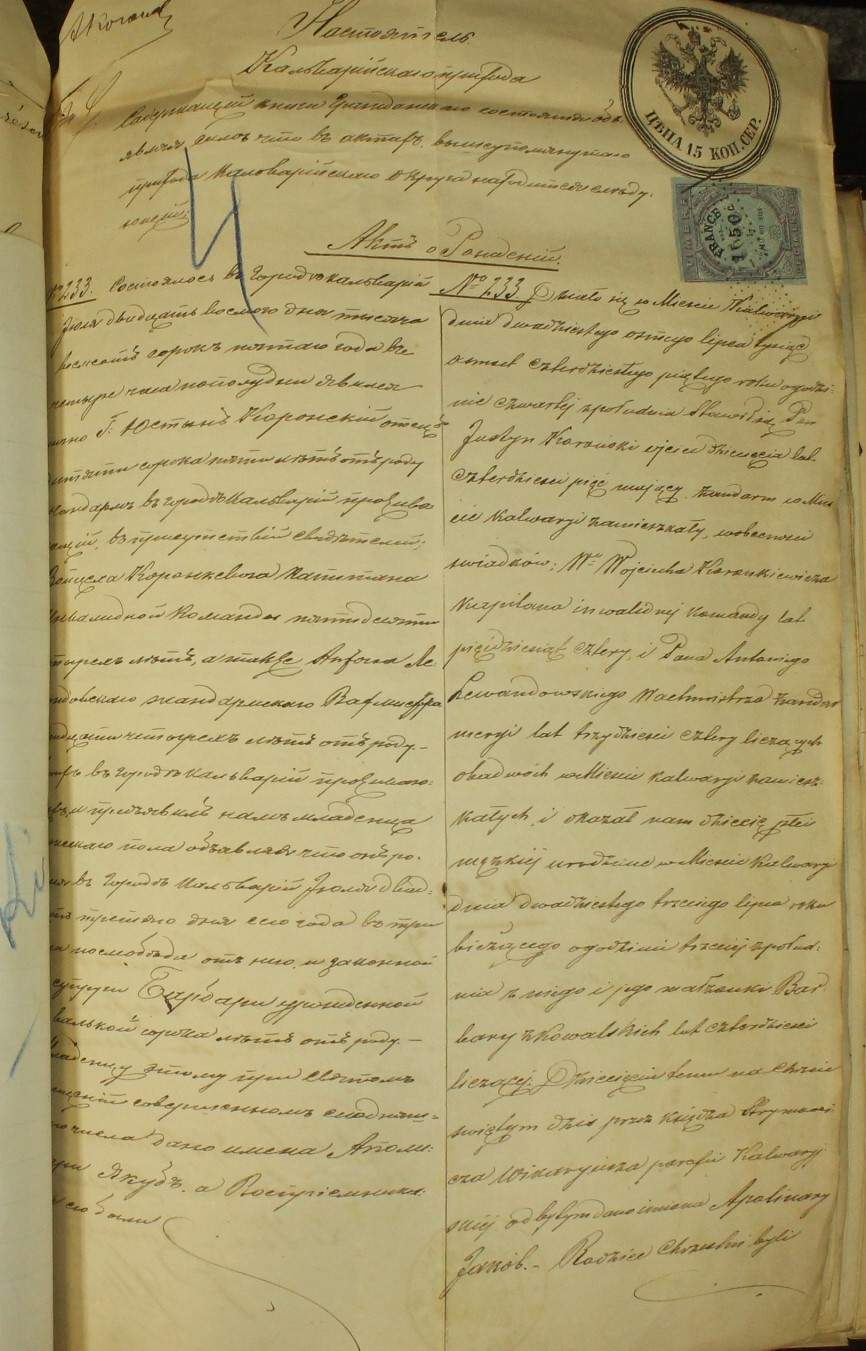 Настоятель
Кальварійскаго прихода
Содержащій книги Гражданскаго состоянія объ
являя симъ что въ актахъ вышеупомянутаго
прихода Кальварійскаго округа находится слѣду-
ющій:
4
ЦѢНА 15 КОП. СЕР.
FRANCE
1F50c
Актъ о Рожденіи.
№ 233. Состоялось въ городѣ Кальваріи
Іюля двадцать восмого дня тысяча
восмсотъ сорокъ пятаго года въ
четыре часа пополудни явился
лично Г. Юстынъ Коронскій отецъ
дитяти сорока пяти лѣтъ отъ роду
жандармъ въ городѣ Кальваріи прожива
ющій, въ присутствіи свидѣтелей;
Войцеха Коронкевича Капитана
Инвалидной Команды пятидесяти
четырехъ лѣтъ, а также Антона Ле
вандовскаго жандармскаго Вахмистра
тридцати четырехъ лѣтъ отъ роду –
въ городѣ Кальваріи прожива-
и предъявилъ намъ младенца
мужескаго пола объявляя что онъ ро-
въ городѣ Кальваріи Іюля двад-
третяго дня сего года въ три
часа послѣ обѣда отъ него и законной
супруги Барбары урожденной
Ковальской сорока лѣтъ отъ роду. –
Младенцу этому при Святомъ
Крещеніи совершенномъ
числа дано имена Аполи-
Якубъ, а Воспріемника-
его были
№ 233. Działo się w Mieście Kalwaryi
dnia dwudziestego ósmego lipca tysiąc
osmset czterdziestego piątego roku o godzi-
nie czwartej z południa Stawił się Pan
Justyn Koroński ojciec dziecięcia lat
czterdzieści pięć mający, żandarm w Mie
ście Kalwaryi zamieszkały, w obecności
świadków; Wo Wojciecha Koronkiewicza
Kapitana inwalidnej komandy lat
pięćdziesiąt cztery, i Pana Antoniego
Lewandowskiego Wachmistrza żandar
meryi lat trzydzieści cztery liczących
obudwóch w Mieście Kalwaryi zamiesz-
kałych, i okazał nam dziecię płci
męzkiej urodzone w Mieście Kalwaryi
dnia dwudziestego trzeciego lipca roku
bieżącego o godzinie trzeciej z połud-
nia z niego i jego małżonki Bar-
bary z Kowalskich lat czterdzieści
liczącej. Dziecięciu temu na Chrzcie
świętym dziś przez Księdza
Wikaryusza parafii Kalwaryj
skiej odbytym dano imiona Apolinary
Jakób. – Rodzice chrzestni byli